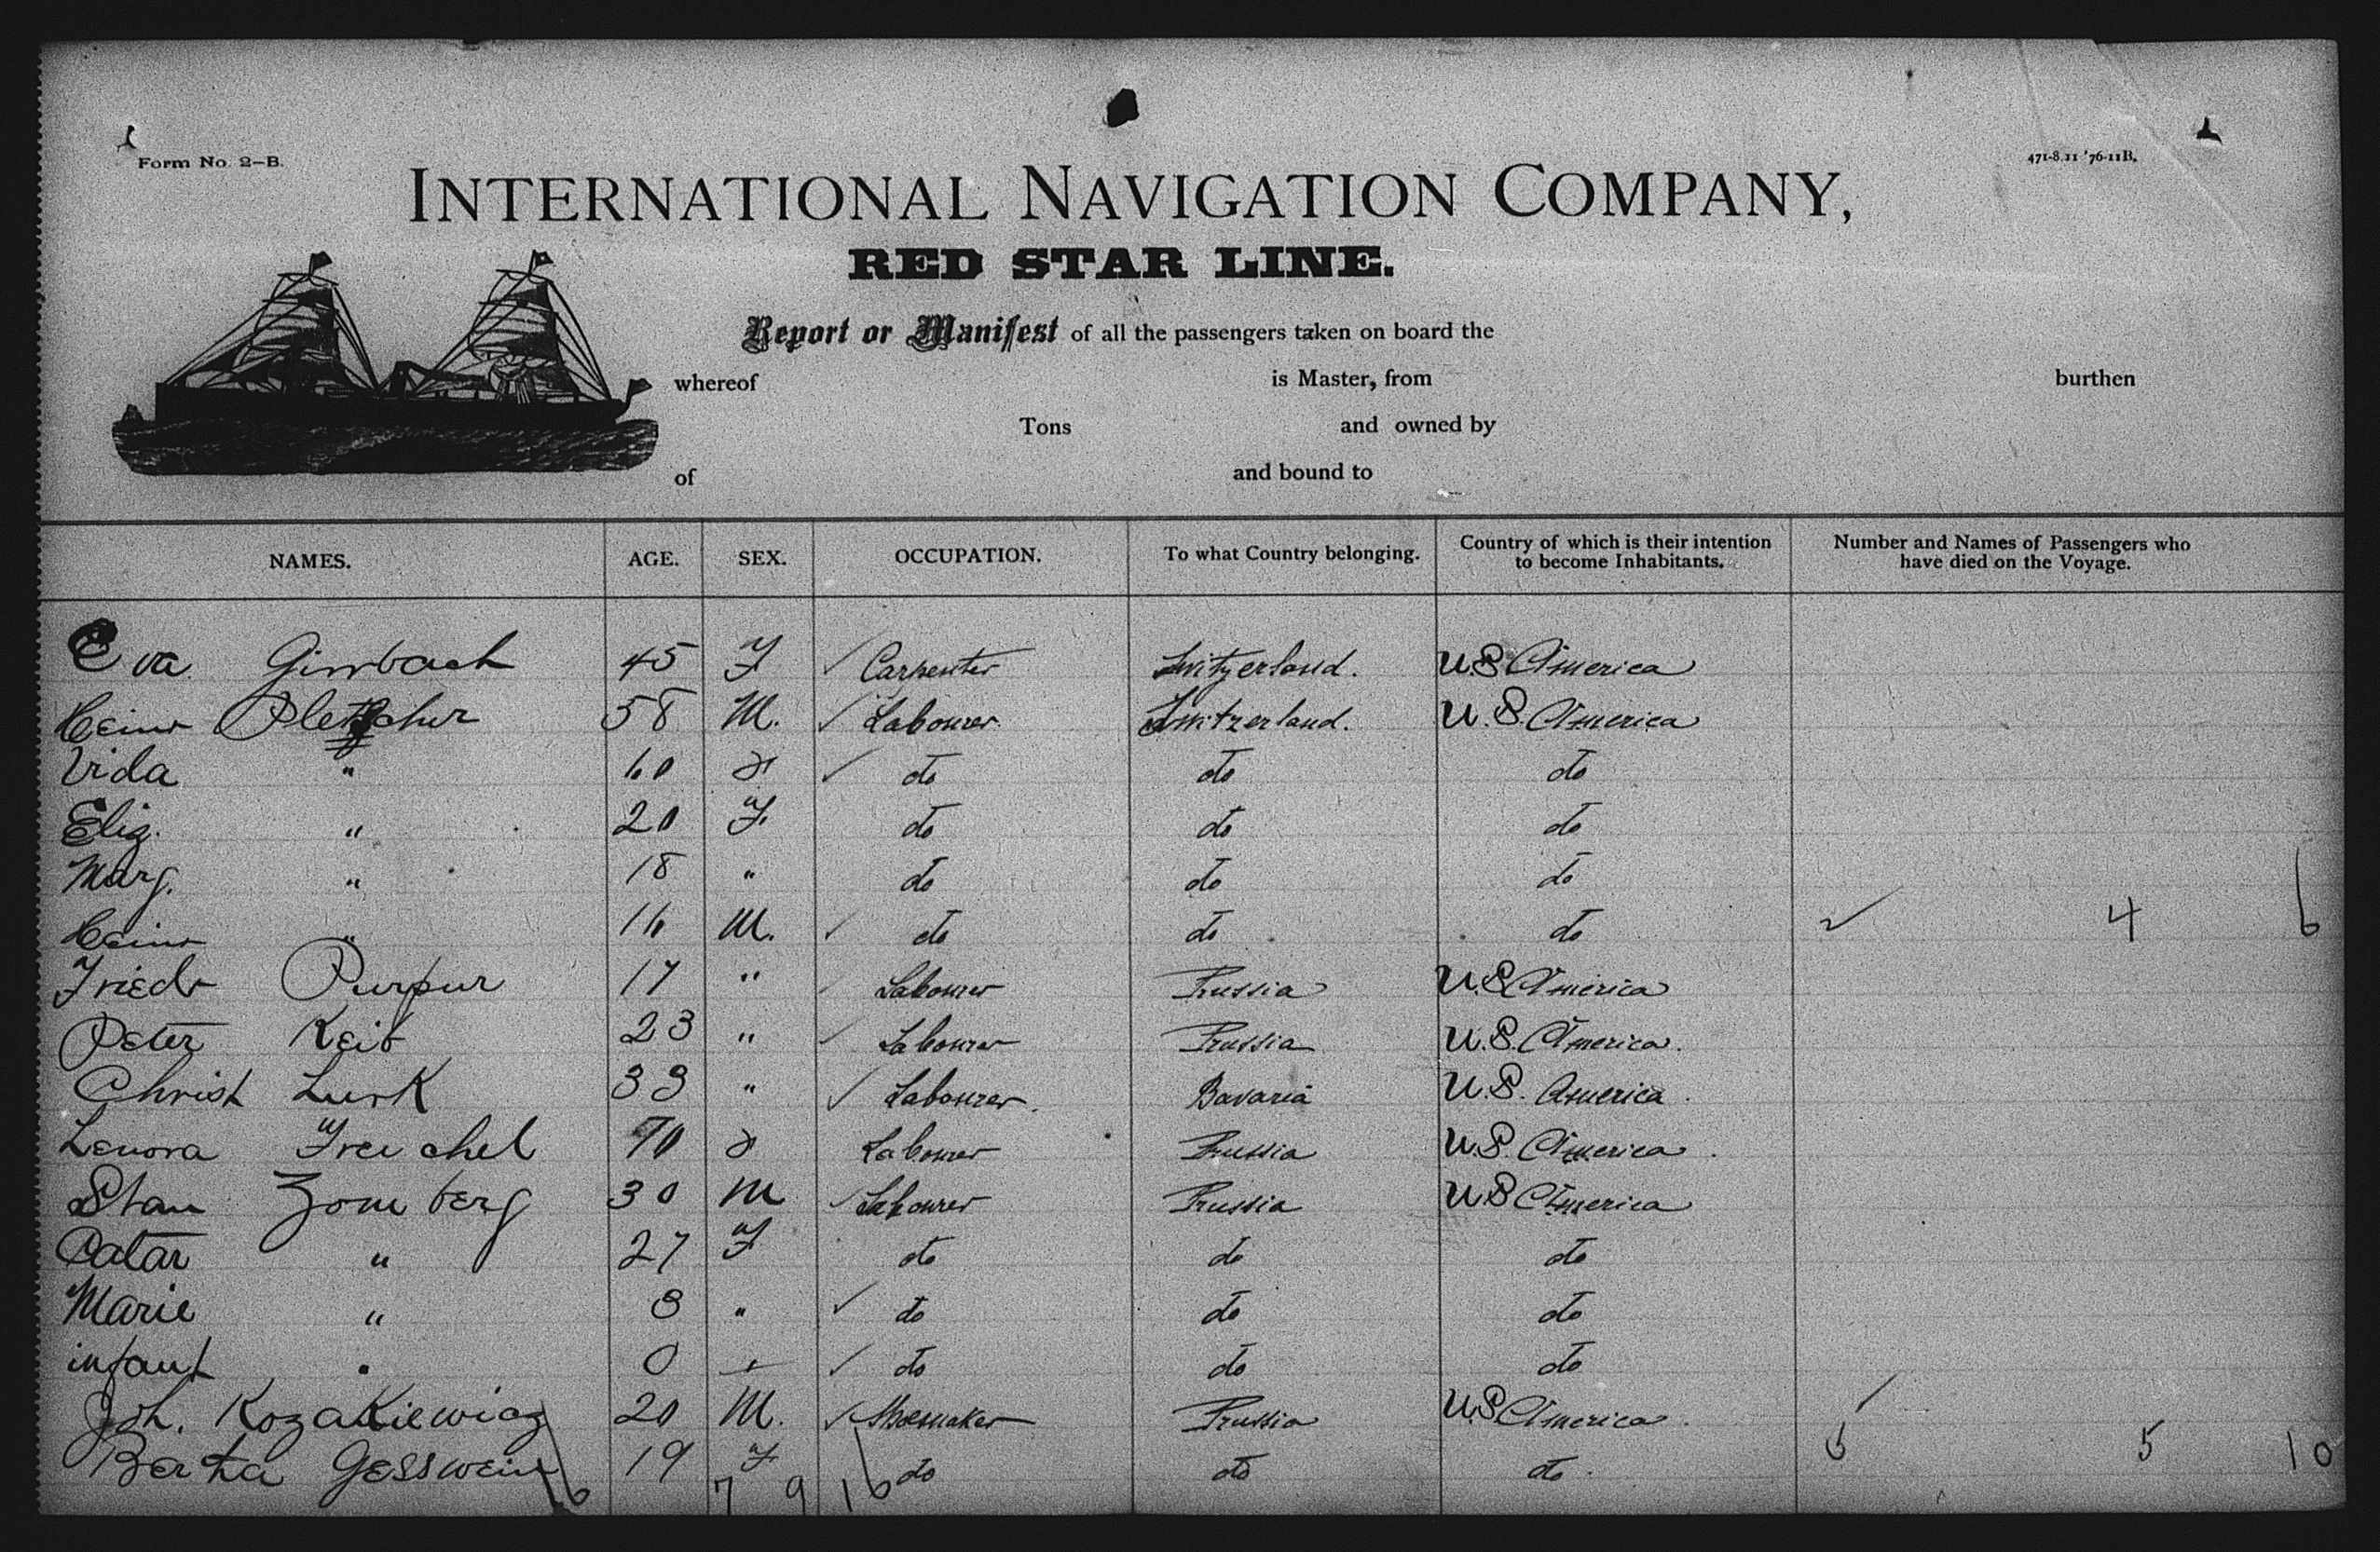 Form No. 2-B.
471-8.11 '76-11B.
INTERNATIONAL NAVIGATION COMPANY,
RED STAR LINE.
Report or Manifest of all the passengers taken on board the
whereof is Master, from burthen
Tons and owned by
of and bound to
NAMES. AGE. SEX. OCCUPATION. To what Country belonging. Country of which is their intention to become Inhabitants. Number and Names of Passengers who have died on the Voyage.
Eva Girrbach 45 F ✓ Carpenter Switzerland. U.S America
Heinr Pletscher 58 M. ✓ Labourer. Switzerland. U.S. America
Vida " 60 ✓ do do do
Eliz. " 20 F. do do do
Marg. " 18 " do do do
Heinr " 16 M. ✓ do do do ✓ 4 6
Friedr Purpur 17 " Labourer Prussia U.S America
Peter Keib 23 " ✓ Labourer Prussia U.S. America.
Christ Lurk 33 " ✓ Labourer. Bavaria U.S. America.
Lenora Freuchel 70 Labourer Prussia U.S. America.
Stan Zomberg 30 M ✓ Labourer Prussia U.S America
Catar " 27 F do do do
Marie " 3 " ✓ do do do
infant " 0 ✓ do do do
Joh. Kozakiewicz 20 M. ✓ Shoemaker Prussia U.S America.
Berta Gesswein 19 F do do do. 5 10
16 7 9 16